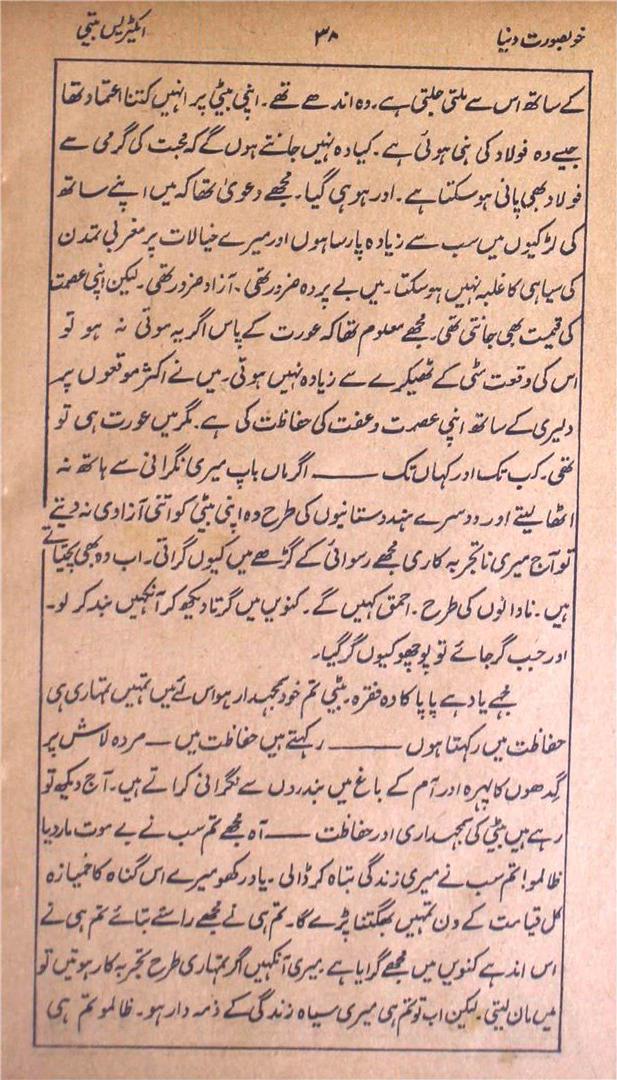 خوبصورت دنیا ۳۸ ایکٹریس بیتی
کے ساتھ اس سے ملتی جلتی ہے۔ وہ اندھے تھے۔ اپنی بیٹی پر انہیں کتنا اعتماد تھا
جیسے وہ فولاد کی بنی ہوئی ہے۔ کیا وہ نہیں جانتے ہوں گے کہ محبت کی گرمی سے
فولاد بھی پانی ہو سکتا ہے۔ اور ہو ہی گیا۔ مجھے دعویٰ تھا کہ میں اپنے ساتھ
کی لڑکیوں میں سب سے زیادہ پارسا ہوں اور میرے خیالات پر مغربی تمدن
کی سیاہی کا غلبہ نہیں ہو سکتا۔ میں بے پردہ ضرور تھی۔ آزاد ضرور تھی۔ لیکن اپنی عصمت
کی قیمت بھی جانتی تھی۔ مجھے معلوم تھا کہ عورت کے پاس اگر یہ موتی نہ ہو تو
اس کی وقعت مٹی کے ٹھیکرے سے زیادہ نہیں ہوتی۔ میں نے اکثر موقعوں پر
دلیری کے ساتھ اپنی عصمت و عفت کی حفاظت کی ہے۔ مگر میں عورت ہی تو
تھی۔ کب تک اور کہاں تک ــــــــ اگر ماں باپ میری نگرانی سے ہاتھ نہ
اٹھا لیتے اور دوسرے ہندوستانیوں کی طرح وہ اپنی بیٹی کو اتنی آزادی نہ دیتے
تو آج میری ناتجربہ کاری مجھے رسوائی کے گڑھے میں کیوں گراتی۔ اب وہ بھی پچتاتے
ہیں۔ نادانوں کی طرح۔ احمق کہیں گے۔ کنویں میں گرتا دیکھ کر آنکھیں بند کر لو۔
اور جب گر جائے تو پوچھو کیوں گر گیا۔
مجھے یاد ہے پاپا کا وہ فقرہ۔ بیٹی تم خود سمجہدار ہو اس لئے میں تمہیں تمہاری ہی
حفاظت میں رکہتا ہوں ــــــــ رکہتے ہیں حفاظت میں ــــ مردہ لاش پر
گدھوں کا پہرہ اور آم کے باغ میں بندروں سے نگرانی کراتے ہیں۔ آج دیکھ تو
رہے ہیں بیٹی کی سمجہداری اور حفاظت ــــ آہ مجھے تم سب نے بے موت مار دیا
ظالمو! تم سب نے میری زندگی تباہ کر ڈالی۔ یاد رکھو میرے اس گناہ کا خمیازہ
کل قیامت کے دن تمہیں بھگتنا پڑے گا۔ تم ہی نے مجھے راستے بتائے تم ہی نے
اس اندہے کنویں میں مجھے گرایا ہے۔ میری آنکہیں اگر تمہاری طرح تجربہ کار ہوتیں تو
میں مان لیتی۔ لیکن اب تو تم ہی میری سیاہ زندگی کے ذمہ دار ہو۔ ظالمو تم ہی